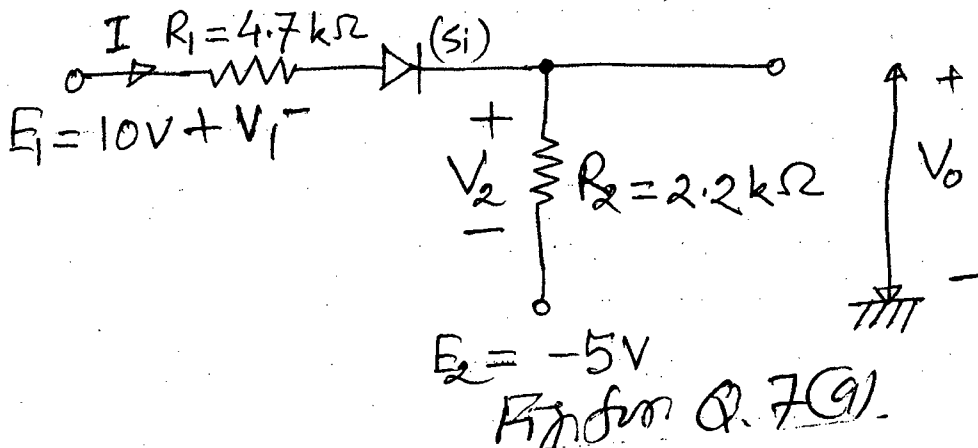 I R₁=4.7kΩ (Si)
E₁=10V + V₁ -
+
V₂
-
R₂=2.2kΩ
+
V₀
-
E₂= -5V
Fig for Q.7(a).